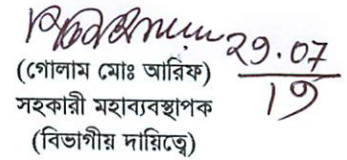 29.07
19
(গোলাম মোঃ আরিফ)
সহকারী মহাব্যবস্থাপক
(বিভাগীয় দায়িত্বে)